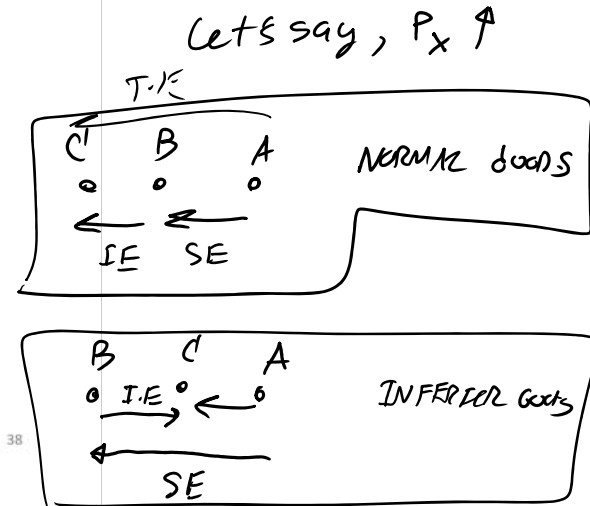 Let's say, Px ↑
T.E
C B A
NORMAL GOODS
IE SE
B C A
I.E
INFERIOR Goods
38
SE